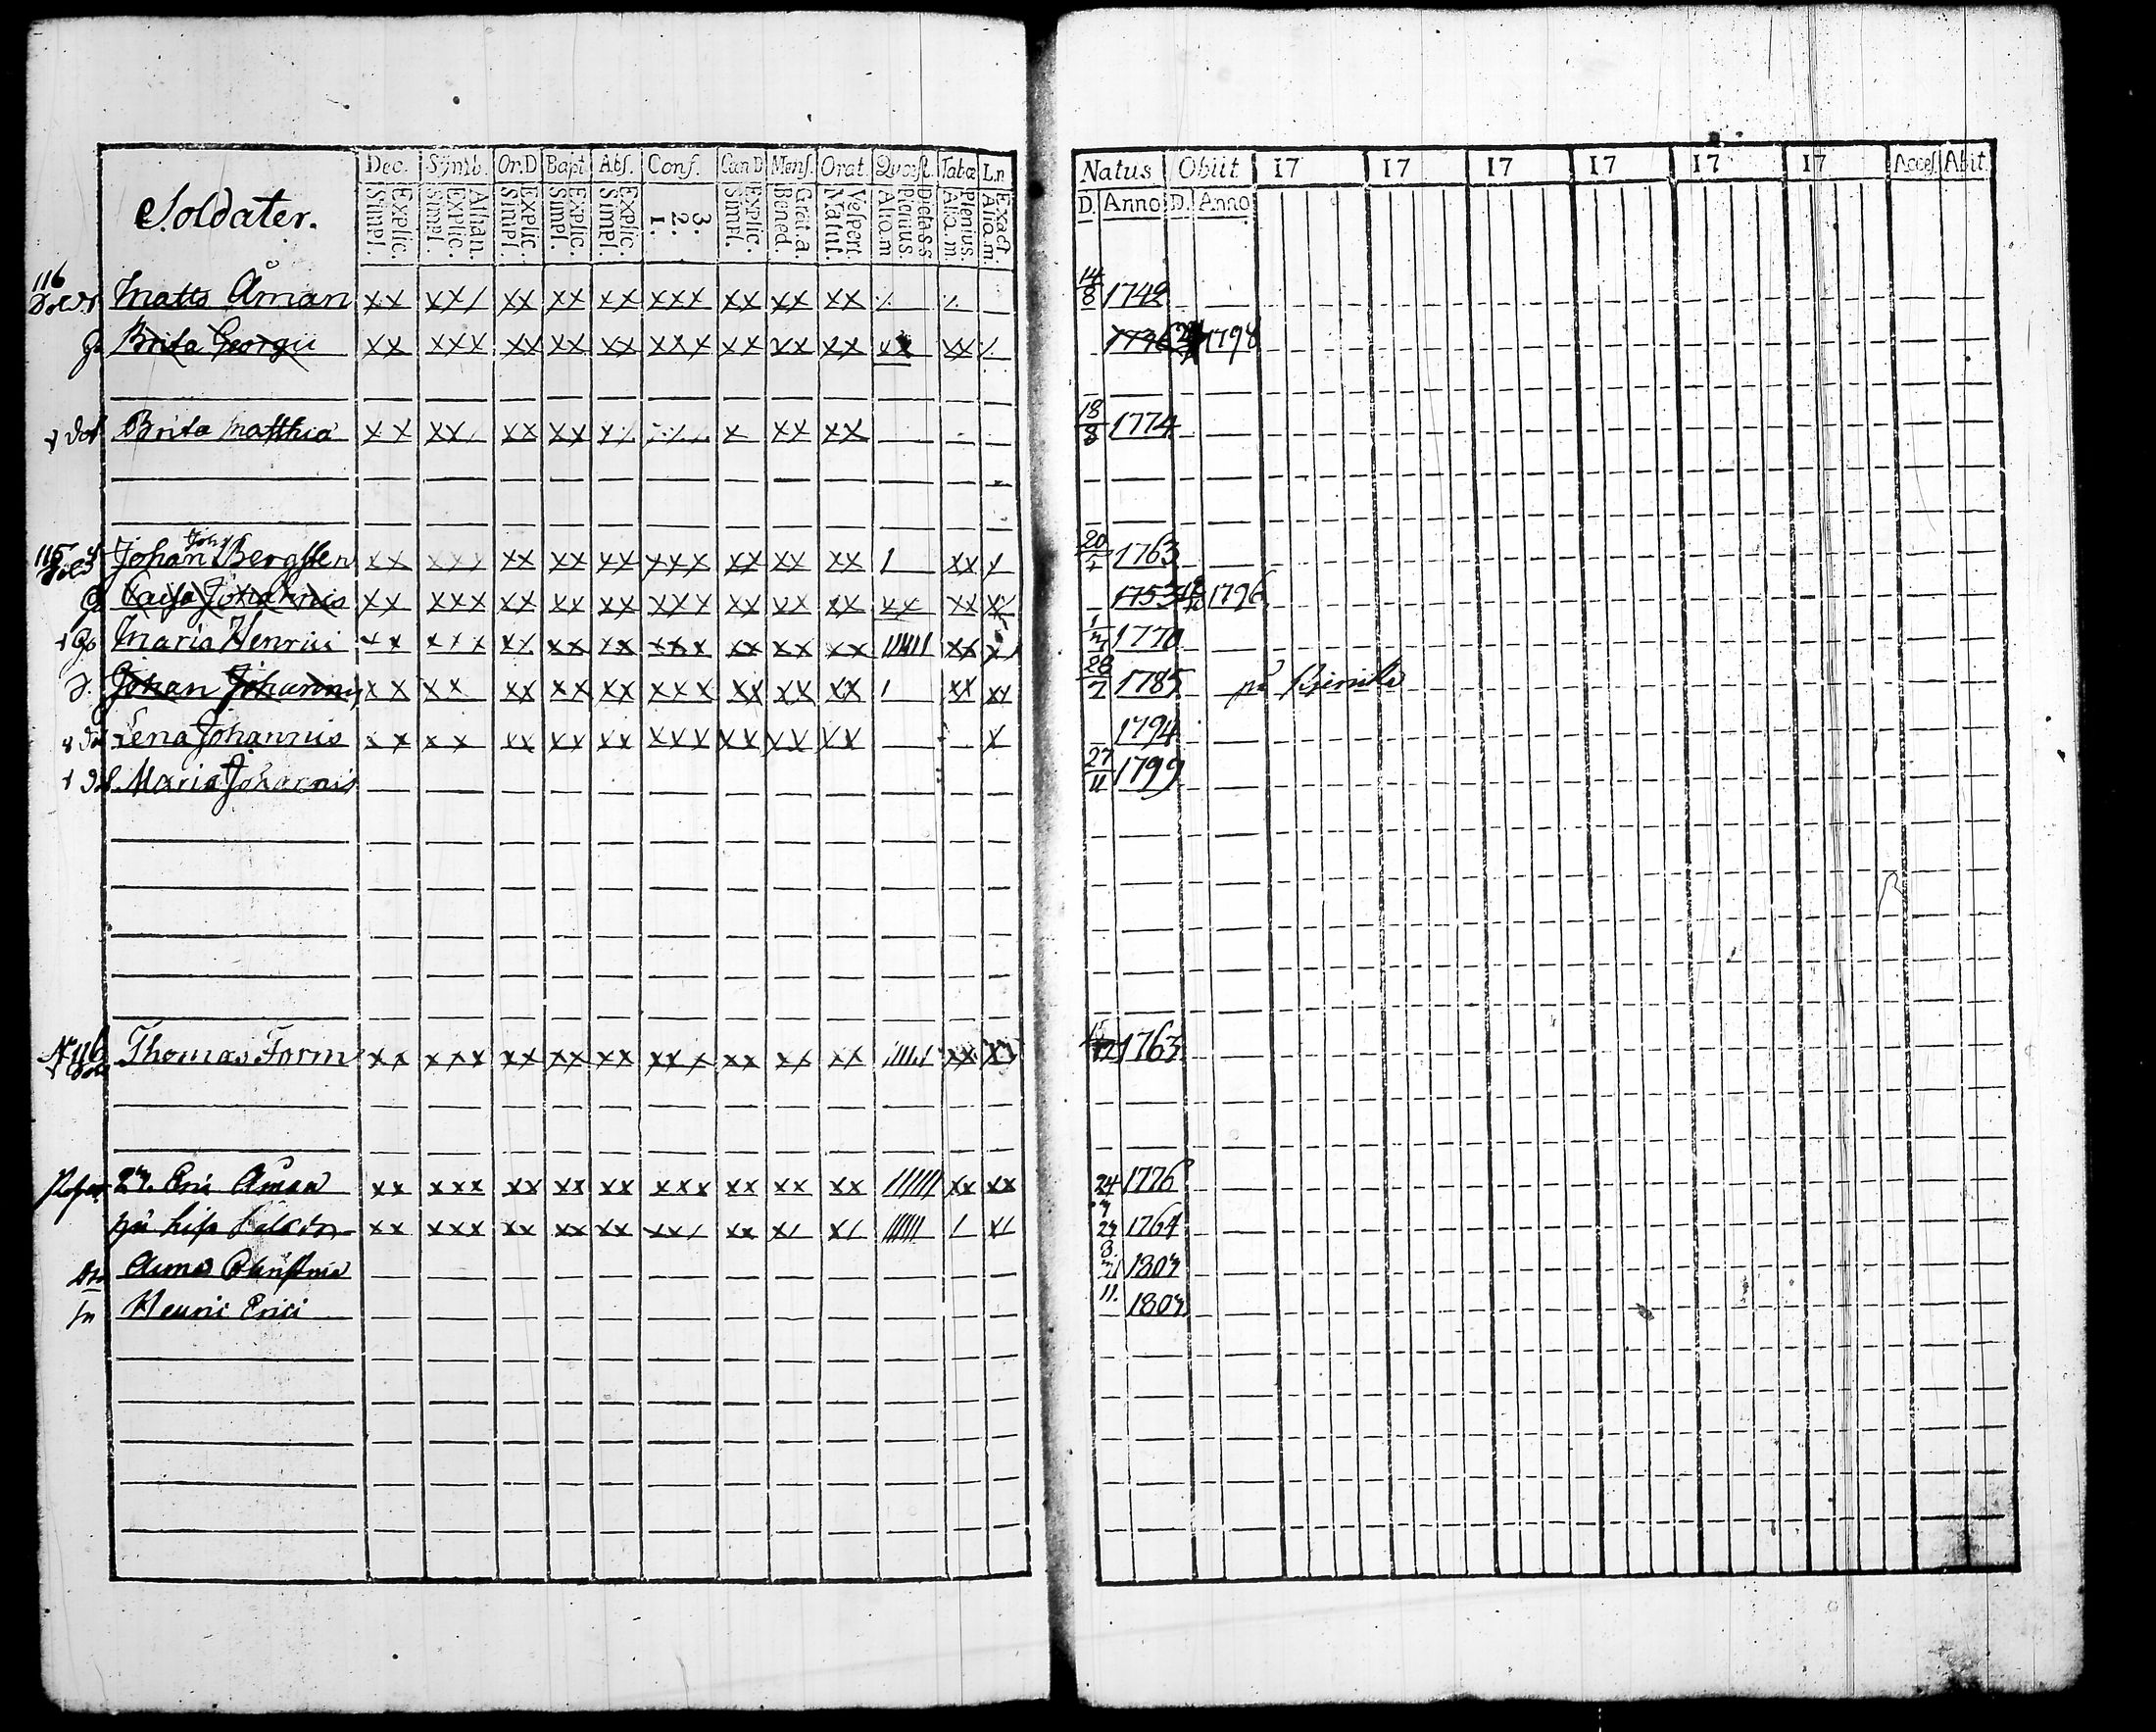 Soldater.
Dec. Symb. Or.D Bapt Abs. Conf. Can D Mens. Orat. Quæst. Tabæ L.n
Simpl. Explic. Simpl. Explic. Athan. Simpl. Explic. Simpl. Explic. Simpl. Explic. 1. 2. 3. Simpl. Explic. Bened. Grat. a. Matut. Vespert. Aliq.m Plenius. Dicta s.s Aliq.m Plenius. Aliq.m Exact.
Natus Obiit 17 17 17 17 17 17 Acces Abit
D. Anno D. Anno
116
Matts Åman xx xx/ xx xx xx xxx xx xx xx 14/8 1742
Brita Georgii xx xxx xx xx xx xxx xx xx xx xx xx / 1736 1798
dot Brita Matthiæ xx xx xx xx x xx xx 18/8 1774
115
Johan Joh Bergsten xx xxx xx xx xx xxx xx xx xx / xx x 20 1763
Caisa Johannis xx xxx xx xx xx xxx xx xx xx xx xx xx 1753 1796
Maria Henrici xx xxx xx xx xx xxx xx xx xx ////// xx x 1770
Johan Johannis xx xx xx xx xx xxx xx xx xx / xx xx 28/7 1785 på
Lena Johannis xx xx xx xx xx xxx xx xx xx x 1794
Maria Johannis 27/11 1799
N 116 Thomas Form xx xxx xx xx xx xxx xx xx xx xx xx 12 1763
27. Eric Åman xx xxx xx xx xx xxx xx xx xx ////// xx xx 24 1776
Lisa xx xxx xx xx xx xx/ xx x/ x/ ////// / x/ 1764
Anna Christina 1807
Henric Erici 11. 1807